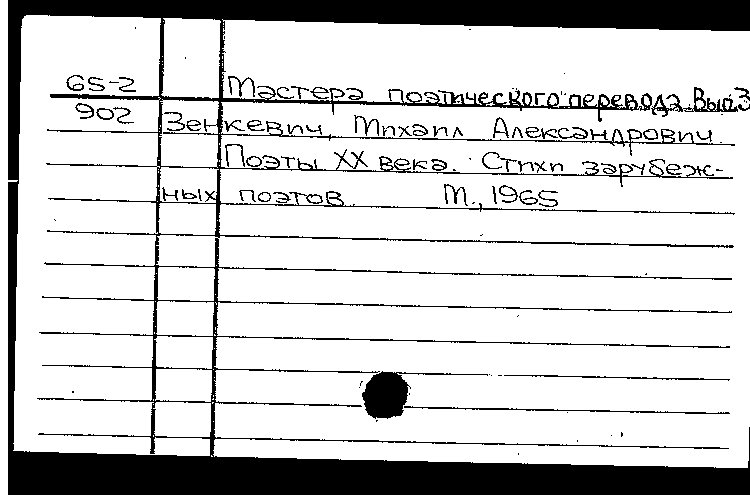 65-2 Мастера поэтического перевода. Вып.3
902 Зенкевич, Михаил Александрович.
Поэты XX века. Стихи зарубеж-
ных поэтов. М., 1965